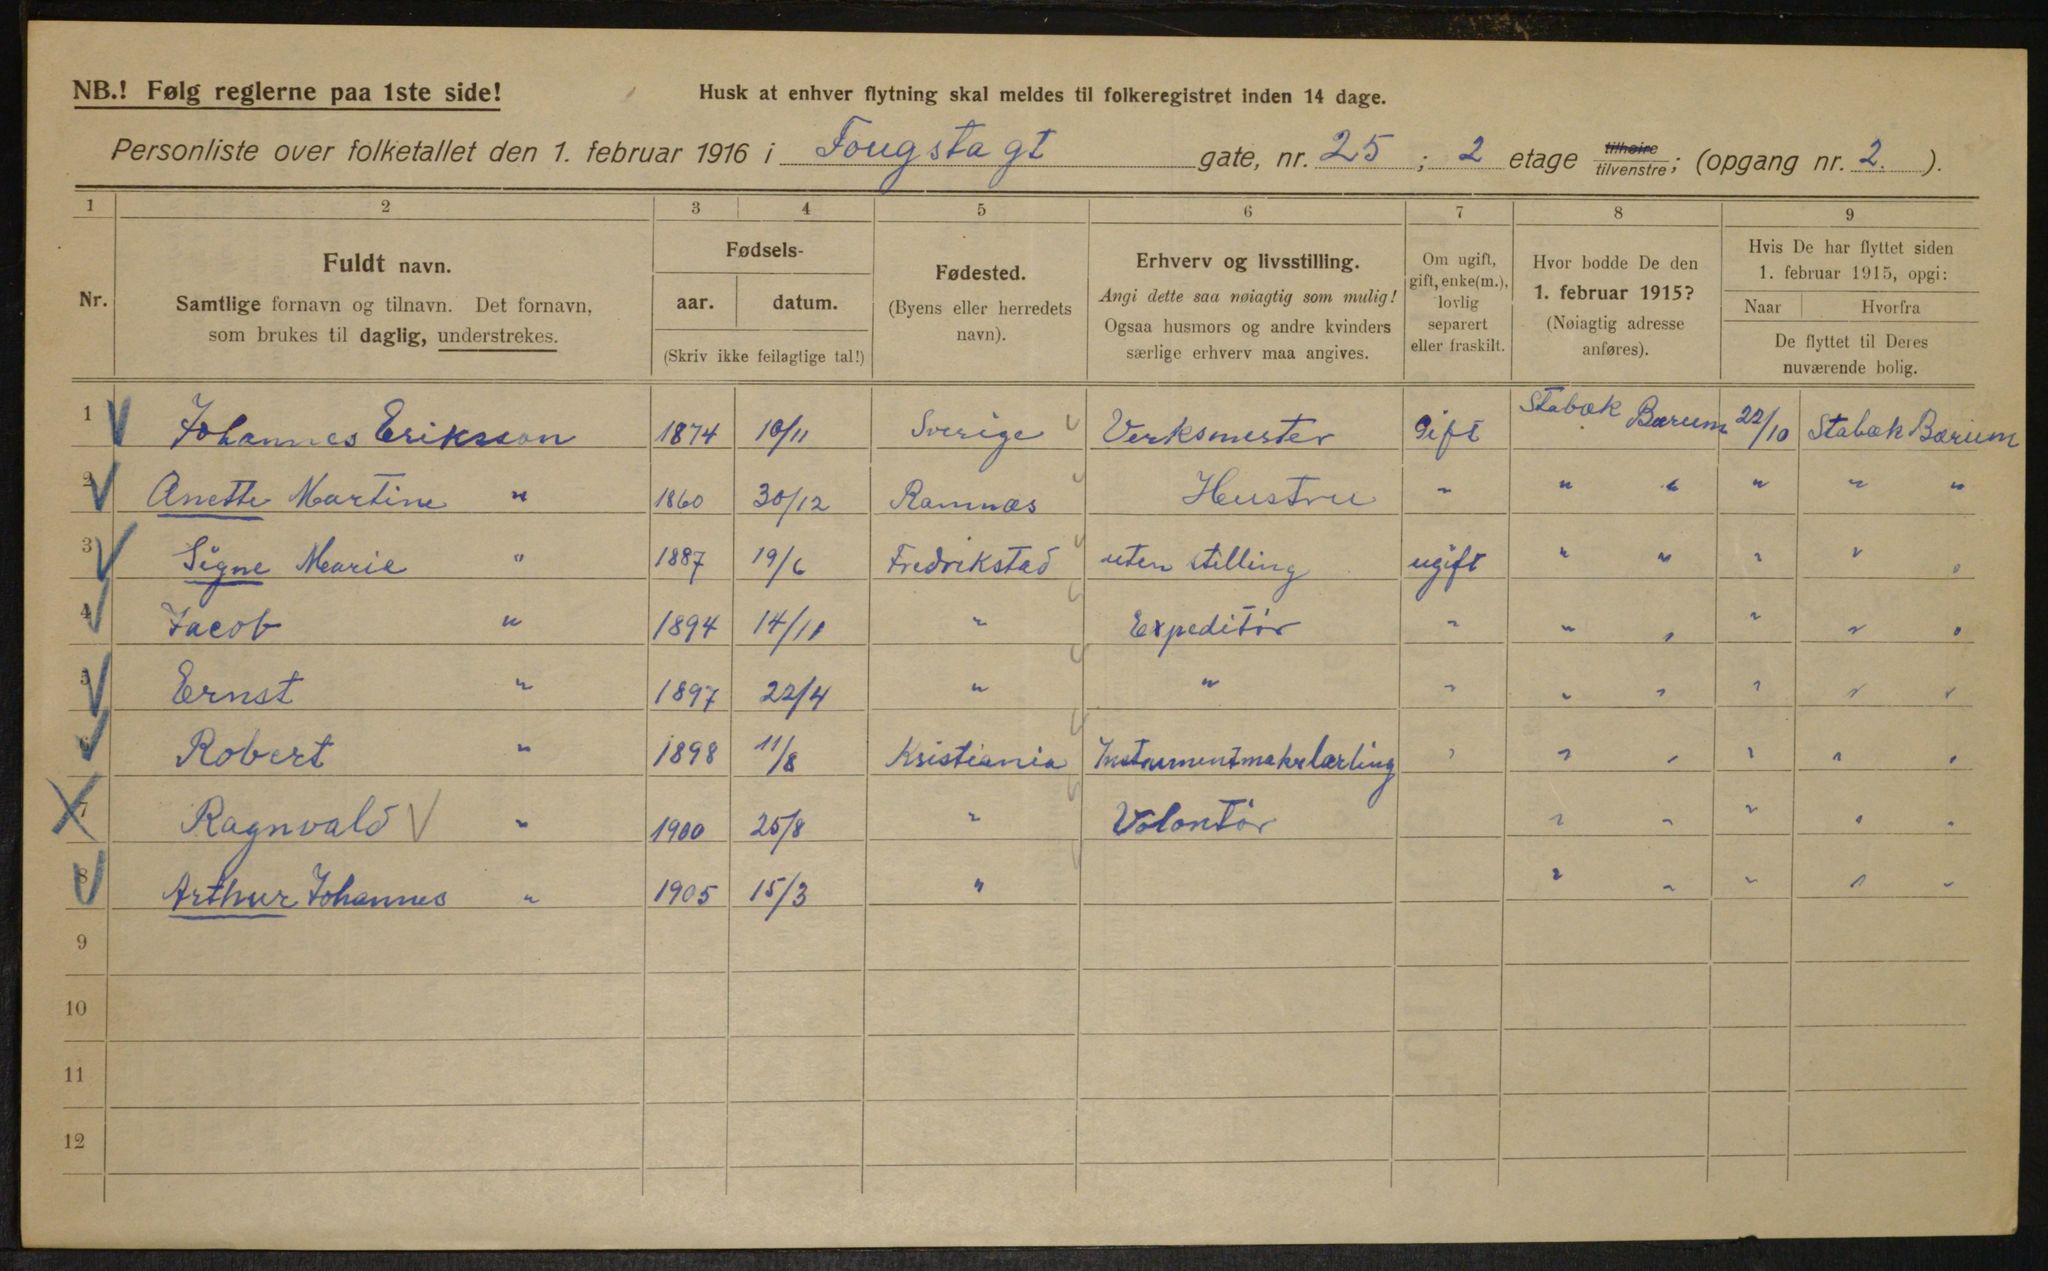 NB.! Følg reglerne paa 1ste side!
Husk at enhver flytning skal meldes til folkeregistret inden 14 dage.
Personliste over folketallet den 1. februar 1916 i Fougsta gt gate, nr. 25 ; 2 etage tilhøire tilvenstre; (opgang nr. 2. ).
1 2 3 4 5 6 7 8 9
Nr.
Fuldt navn.
Samtlige fornavn og tilnavn. Det fornavn,
som brukes til daglig, understrekes.
Fødsels-
aar. datum.
(Skriv ikke feilagtige tal!)
Fødested.
(Byens eller herredets
navn).
Erhverv og livsstilling.
Angi dette saa nøiagtig som mulig!
Ogsaa husmors og andre kvinders
særlige erhverv maa angives.
Om ugift,
gift, enke(m.),
lovlig
separert
eller fraskilt.
Hvor bodde De den
1. februar 1915?
(Nøiagtig adresse
anføres).
Hvis De har flyttet siden
1. februar 1915, opgi:
Naar Hvorfra
De flyttet til Deres
nuværende bolig.
1 Johannes Eriksson 1874 10/11 Sverige Verksmester Gift Stabæk Bærum 22/10 Stabæk Bærum
2 Anette Martine " 1860 30/12 Ramnæs Hustru " " " " " "
3 Signe Marie " 1887 19/6 Fredrikstad uten stilling ugift " " " " "
4 Jacob " 1894 14/11 " Expeditør " " " " " "
5 Ernst " 1897 22/4 " " " " " " " "
6 Robert " 1898 11/8 Kristiania Instrumentmakerlærling " " " " " "
7 Ragnvald " 1900 25/8 " Volontør " " " " "
8 Arthur Johannes " 1905 15/3 " " " " " "
9
10
11
12